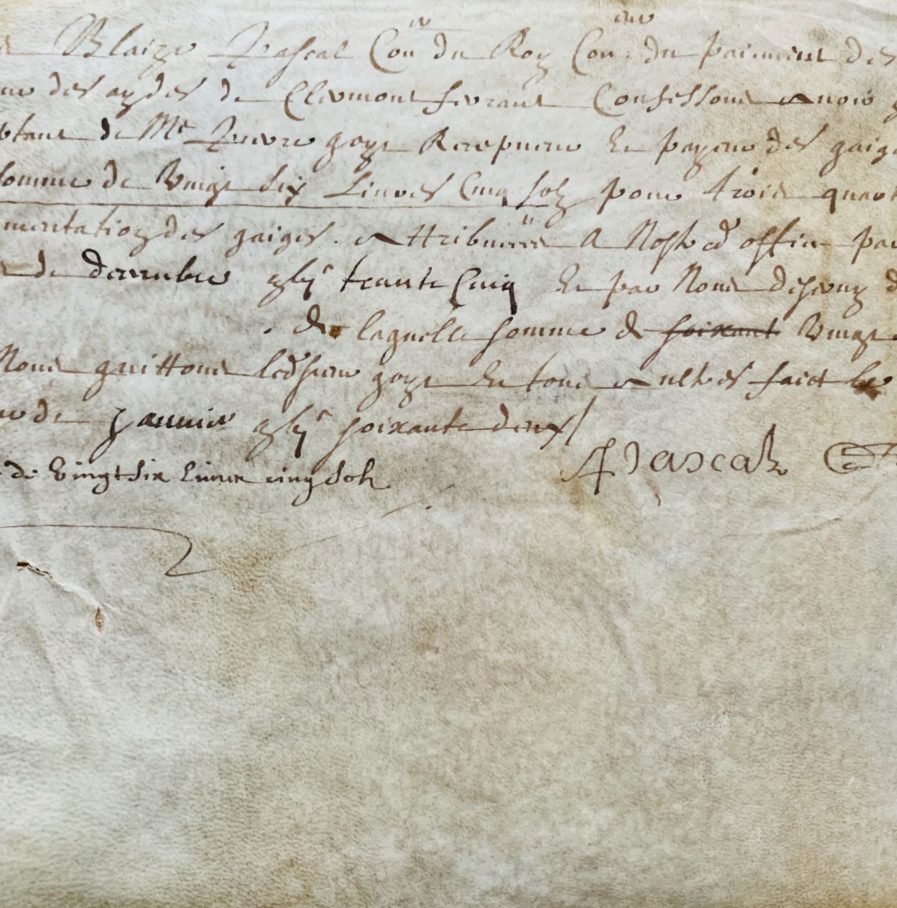 Blaize Pascal Con.er du Roy Con.eur du paiement des
des aydes de Clermont ferrant Confessons avoir
de Me Pierre Recepveur et payeur des gaiges
somme de Vingt six Livres Cinq solz pour trois quart
mentation des gaiges attribuees A Nostred office par
de decembre trente Cinq Et par Nous
de laquelle somme de soixant Vingt
Nous quittons ledsieur Et tous aultres faict le
de Januier soixante deux/
de Vingt six Liures cinq solz
Pascal